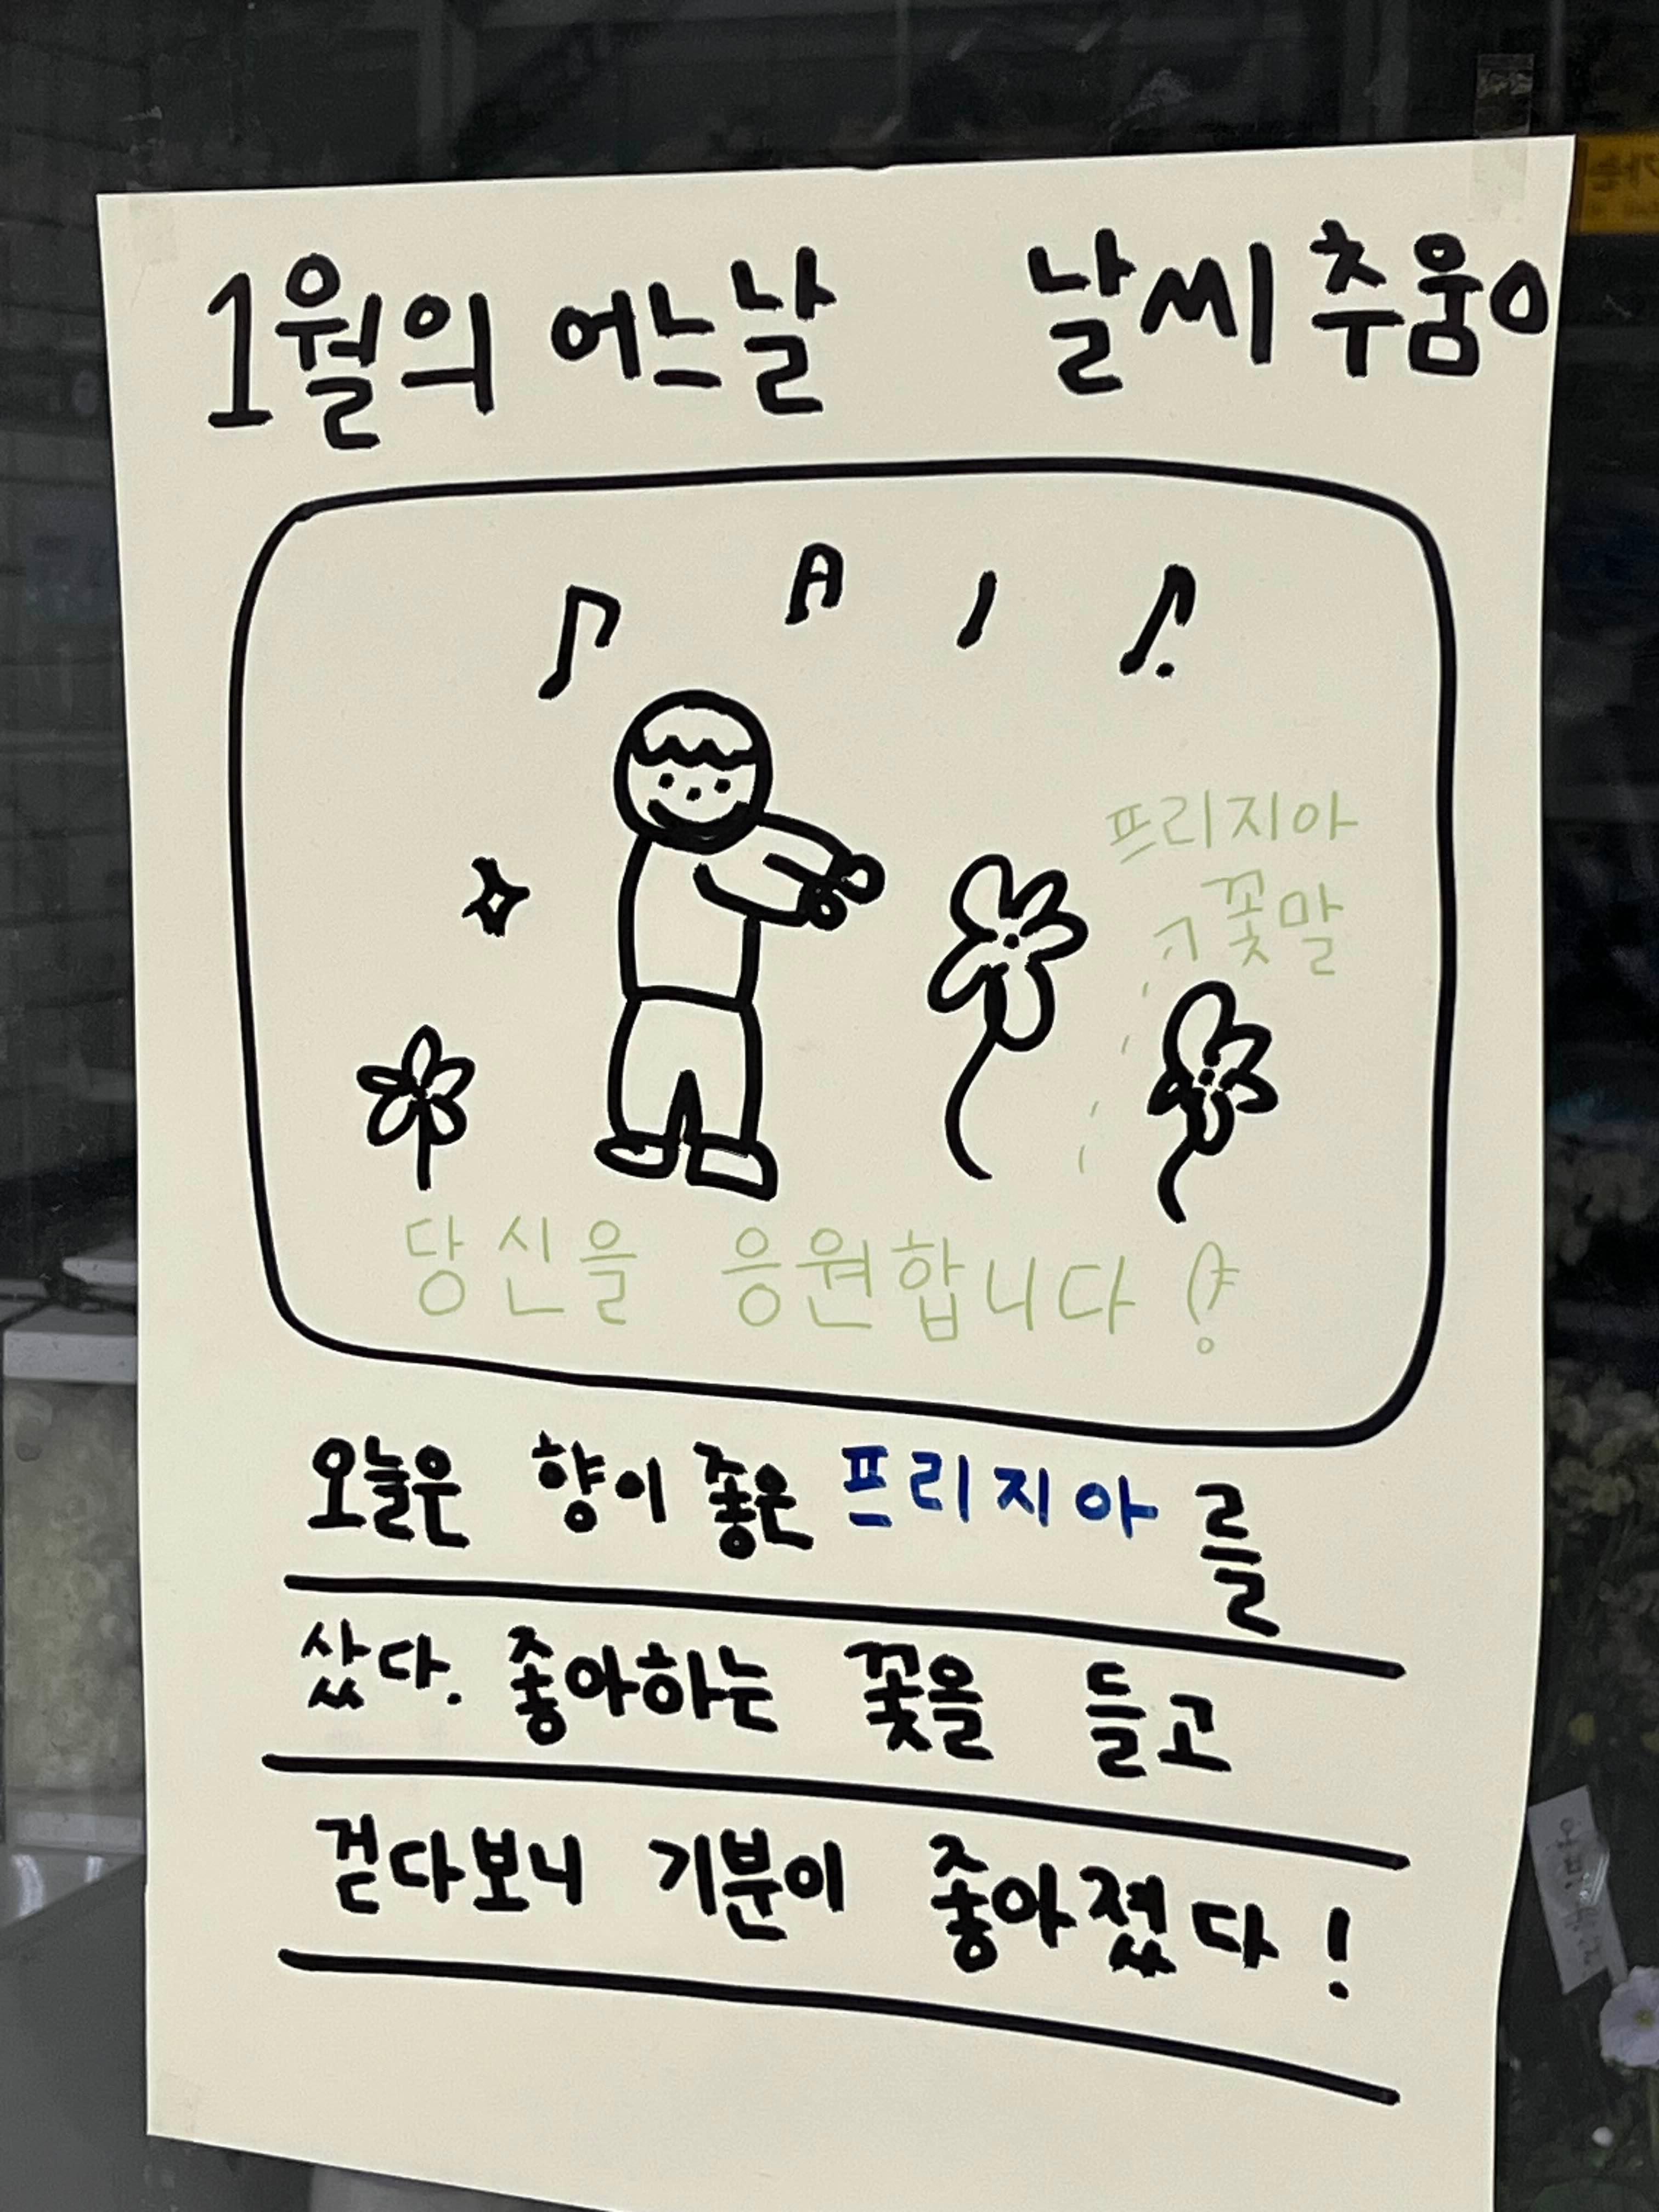 1월의 어느날 날씨 추움ㅇ
프리지아
꽃말
당신을 응원합니다
오늘은 향이 좋은 프리지아를
샀다. 좋아하는 꽃을 들고
걷다보니 기분이 좋아졌다!